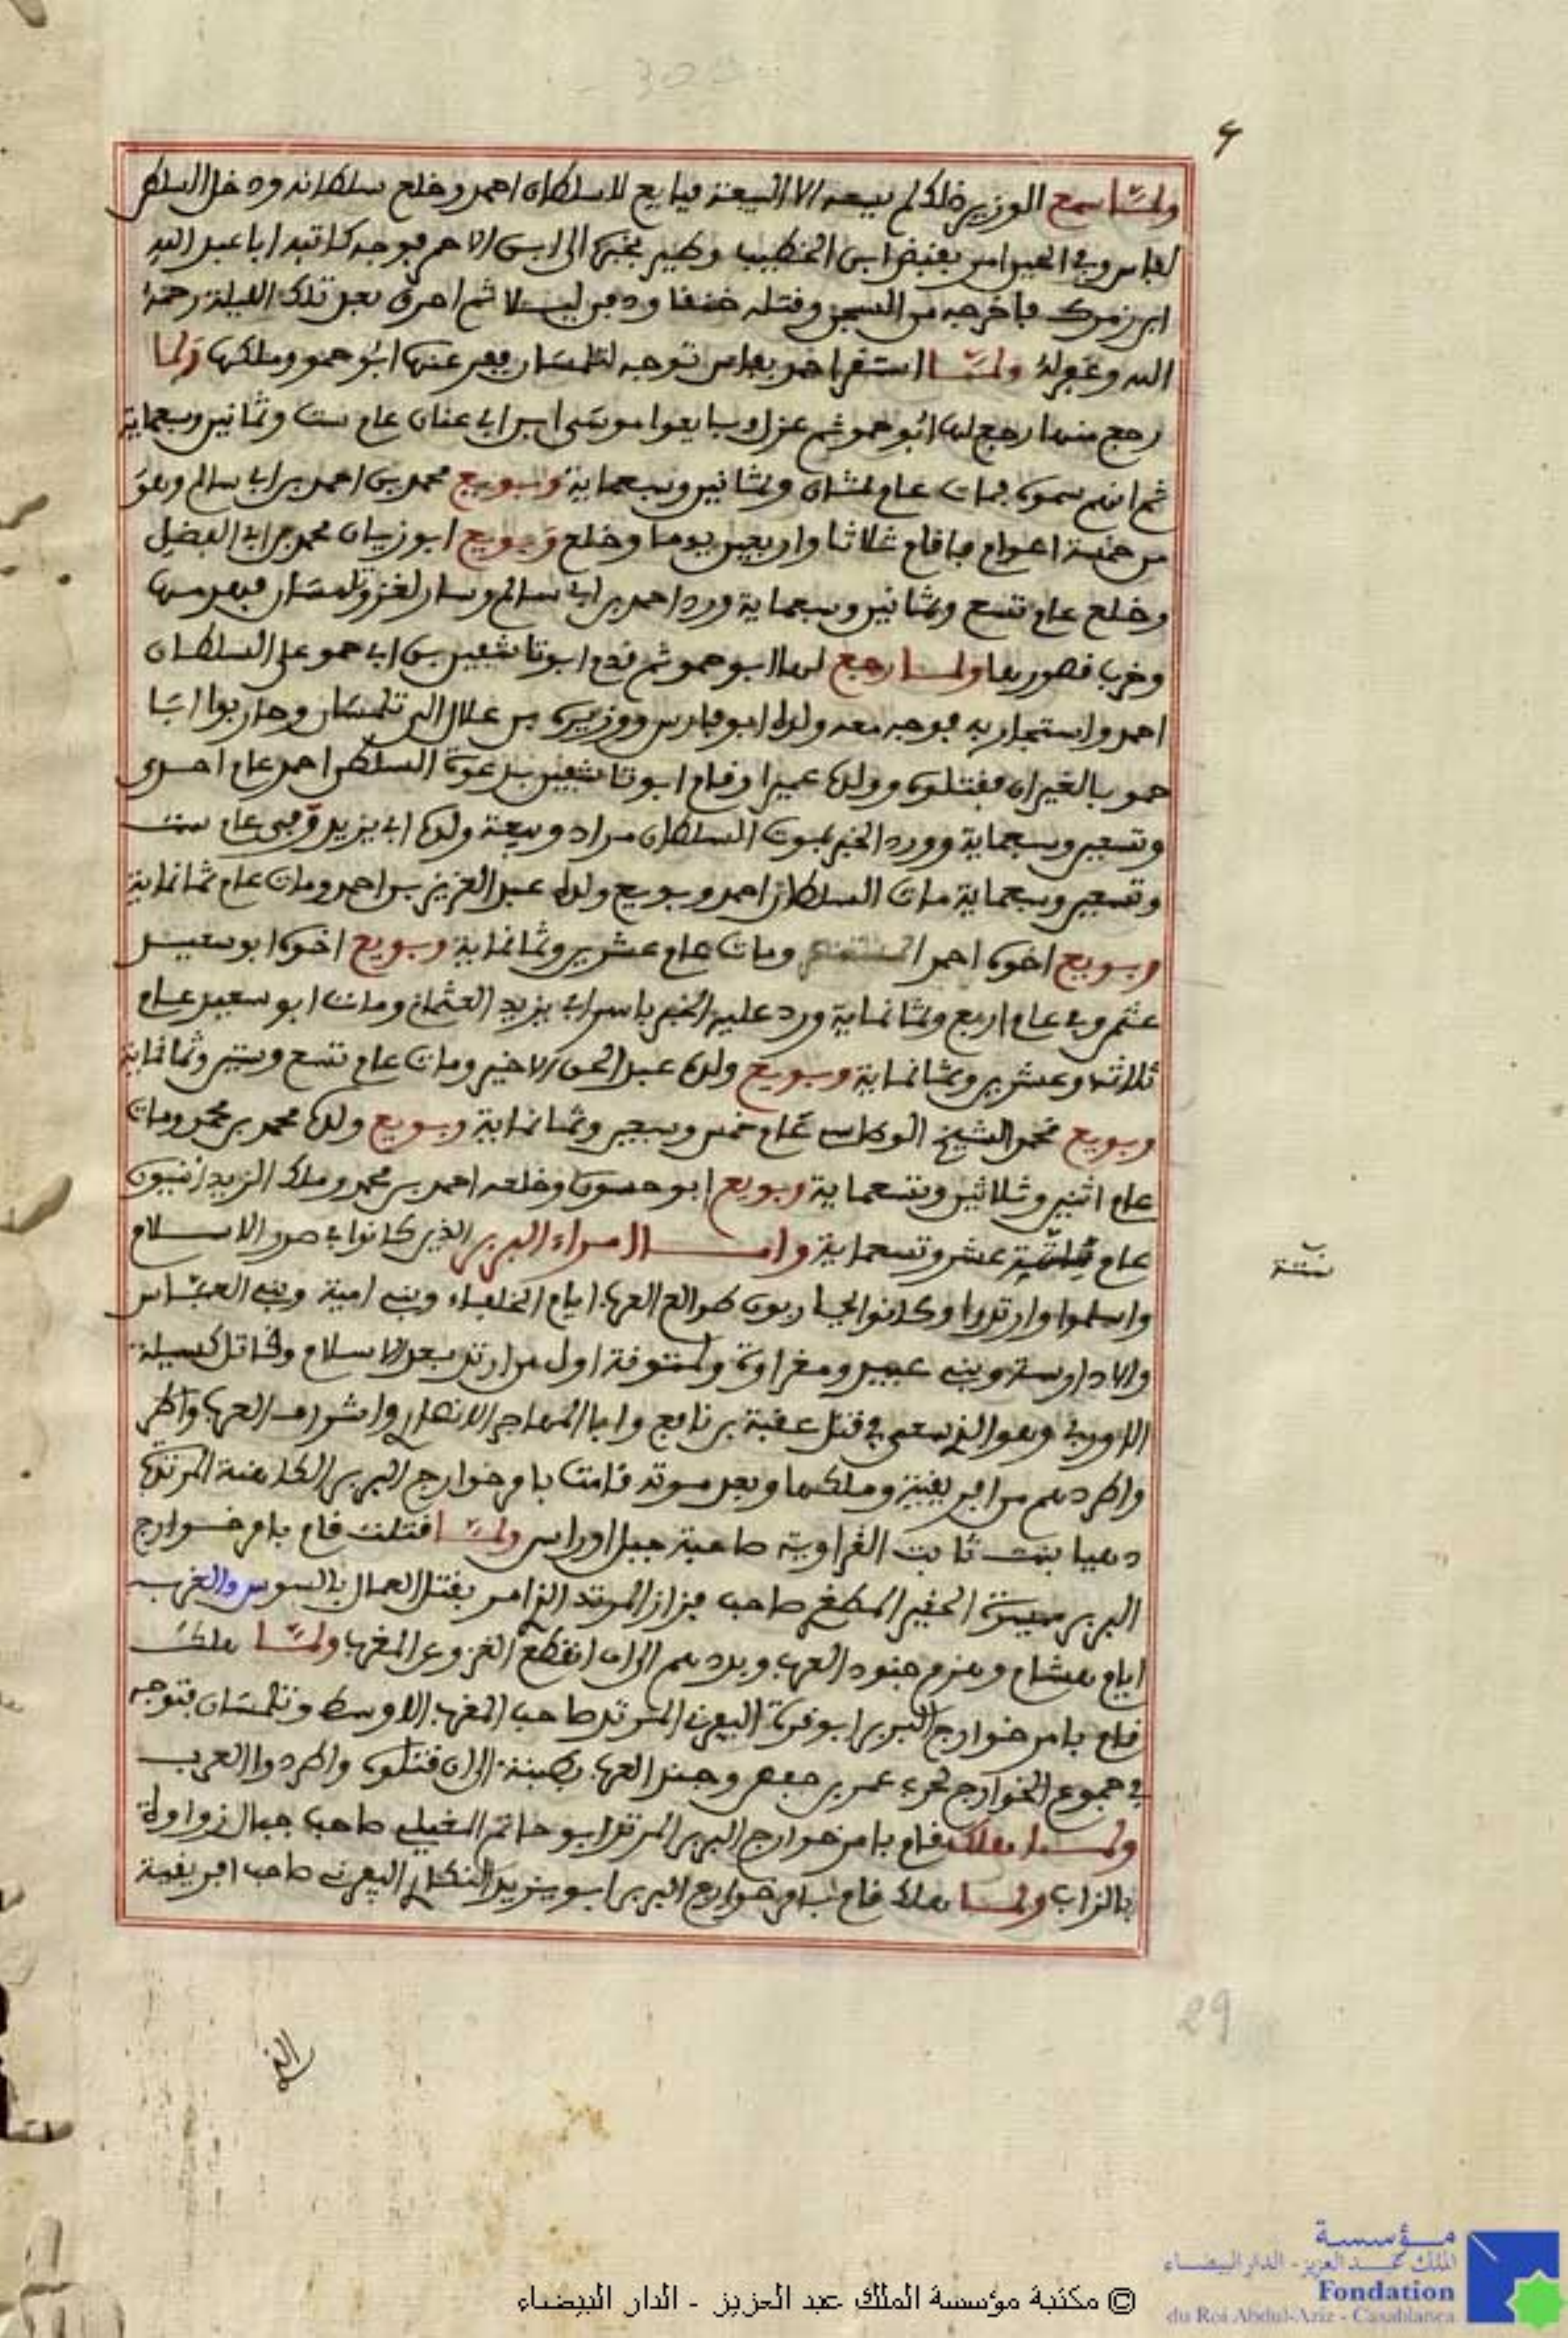 6
ولما سمع الوزير ذلك لم يسعه الا البيعة فبايع للسلطان احمد وخلع سلطانه ودخل السلطن
لفاس وفي الحين امر بقبض ابن الخطيب وطير بخبره الى ابن الاحمر فوجه كاتبه ابا عبد الله
ابن زمرك فاخرجه من السجن وقتله خنقا ودفن ليلا ثم احرق بعد تلك الليلة رحمه
الله وغفر له ولما استقر احمد بفاس توجه لتلمسان ففر عنها ابو حمو وملكها ولما
رجع منها رجع لها ابو حمو ثم عزل وبايعوا موسى ابن ابي عنان عام ست وثمانين وسبعماية
ثم انهم سموه فمات عام ثمان وثمانين وسبعماية وبويع محمد بن احمد بن ابي سالم وهو
من خمسة اعوام فاقام ثلاثا واربعين يوما وخلع وبويع ابو زيان محمد بن ابي الفضل
وخلع عام تسع وثمانين وسبعماية ورد احمد بن ابي سالم وسار لغزو تلمسان فهدمها
وخرب قصورها ولما رجع لها ابو حمو ثم قدم ابو تاشفين بن ابي حمو على السلطان
احمد واستجار به فوجه معه ولده ابو فارس ووزيره بن علال الى تلمسان وحاربوا ابا
حمو بالغيران فقتلوه وولده عميرا وقام ابو تاشفين بدعوة السلطن احمد عام احدى
وتسعين وسبعماية وورد الخبر بموت السلطان مراد وبيعة ولده ابي يزيد وفي عام ست
وتسعين وسبعماية مات السلطان احمد وبويع ولده عبد العزيز بن احمد ومات عام ثمانماية
وبويع اخوه احمد المستنصر ومات عام عشرين وثمانماية وبويع اخوه ابو سعيد
عثمن وفي عام اربع وثمانماية ورد عليه الخبر باسر ابي يزيد العثماني ومات ابو سعيد عام
ثلاثه وعشرين وثمانماية وبويع ولده عبد الحق الاخير ومات عام تسع وستين وثمانماية
وبويع محمد الشيخ الوطاسي عام خمس وسبعين وثمانماية وبويع ولده محمد بن محمد ومات
عام اثنين وثلاثين وتسعماية وبويع ابو حسون وخلعه احمد بن محمد وملك الزيدانيون
عام ستة عشر وتسعماية وامــــا امراء البربر الذين كانوا في صدر الاسلام
واسلموا وارتدوا وكانوا يحاربون طوالع العرب ايام الخلفاء وبني امية وبني العباس
والادارسة وبني عبيد ومغراوة ولمتونة اول من ارتد بعد الاسلام وقاتل كسيلة
الاوربي وهو الذي سعى في قتل عقبة بن نافع وابا المهاجر الانصار واشراف العرب واطر
واطردهم من افريقية وملكها وبعد موته قامت بامر خوارج البربر الكاهنة المرتدة
دهيا بنت ثابت الغراوية صاحبة جبل اوراس ولما قتلت قام بامر خوارج
البربر ميسرة الحفير المطغري صاحب فزاز المرتد الذي امر بقتل العمال بالسوس والغرب
ايام هشام وهزم جنود العرب وبددهم الى ان انقطع الغزو عن المغرب ولما هلك
قام بامر خوارج البربر ابو قرة اليفرني المرتد صاحب المغرب الاوسط وتلمسان فتوجه
في جموع الخوارج لحرب عمر بن حفص وجند العرب بطبنة الى ان قتلوه واطردوا العرب
ولما هلك قام بامر خوارج البربر المرتد ابو حاتم المغيلي صاحب جبال زواوة
بالزاب ولما هلك قام بامر خوارج البربر ابو يزيد النكار اليفرني صاحب افريقية
ستة
29
© مكتبة مؤسسة الملك عبد العزيز - الدار البيضاء
مؤسسة
الملك عبد العزيز - الدار البيضاء
Fondation
du Roi Abdul-Aziz - Casablanca